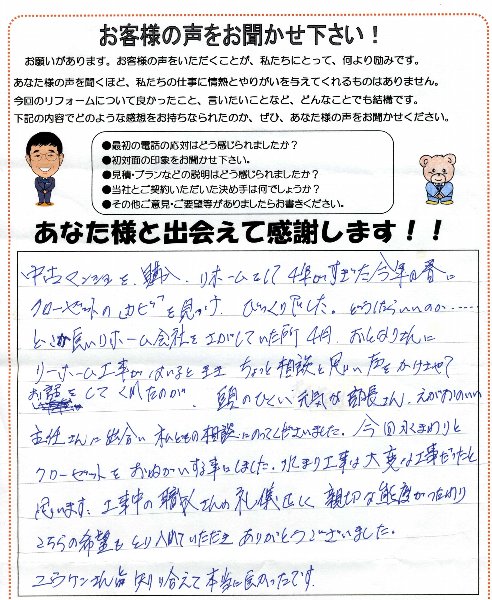 お客様の声をお聞かせ下さい！
お願いがあります。お客様の声をいただくことが、私たちにとって、何より励みです。
あなた様の声を聞くほど、私たちの仕事に情熱とやりがいを与えてくれるものはありません。
今回のリフォームについて良かったこと、言いたいことなど、どんなことでも結構です。
下記の内容でどのような感想をお持ちなられたのか、ぜひ、あなた様の声をお聞かせください。
●最初の電話の応対はどう感じられましたか？
●初対面の印象をお聞かせ下さい。
●見積・プランなどの説明はどう感じられましたか？
●当社とご契約いただいた決め手は何でしょうか？
●その他ご意見・ご要望等がありましたらお書きください。
あなた様と出会えて感謝します！！
中古マンションを、購入、リホームをして4年がすぎた今年の春に
クローゼットのカビを見つけ、びっくりでした。どうしたらいいのか……
どこか良いリホーム会社をさがしていた所 4月、おとなりさんに
リーホーム工事がはいるとき ちょっと相談と思い声をかけさせて
お話をしてくれたのが、頭のひくい元気な部長さん、えがおのいい
主任さんに出会い 私どもの相談にのってくださいました。今回水まわりと
クローゼットをおねがいする事にしました。水まり工事は大変な工事だったと
思います、工事中の職人さんの礼儀正しく 親切な態度かつたわり
こちらの希望も とり入れていただき ありがとうございました。
ユウケンさんと知り合えて本当に良かったです。